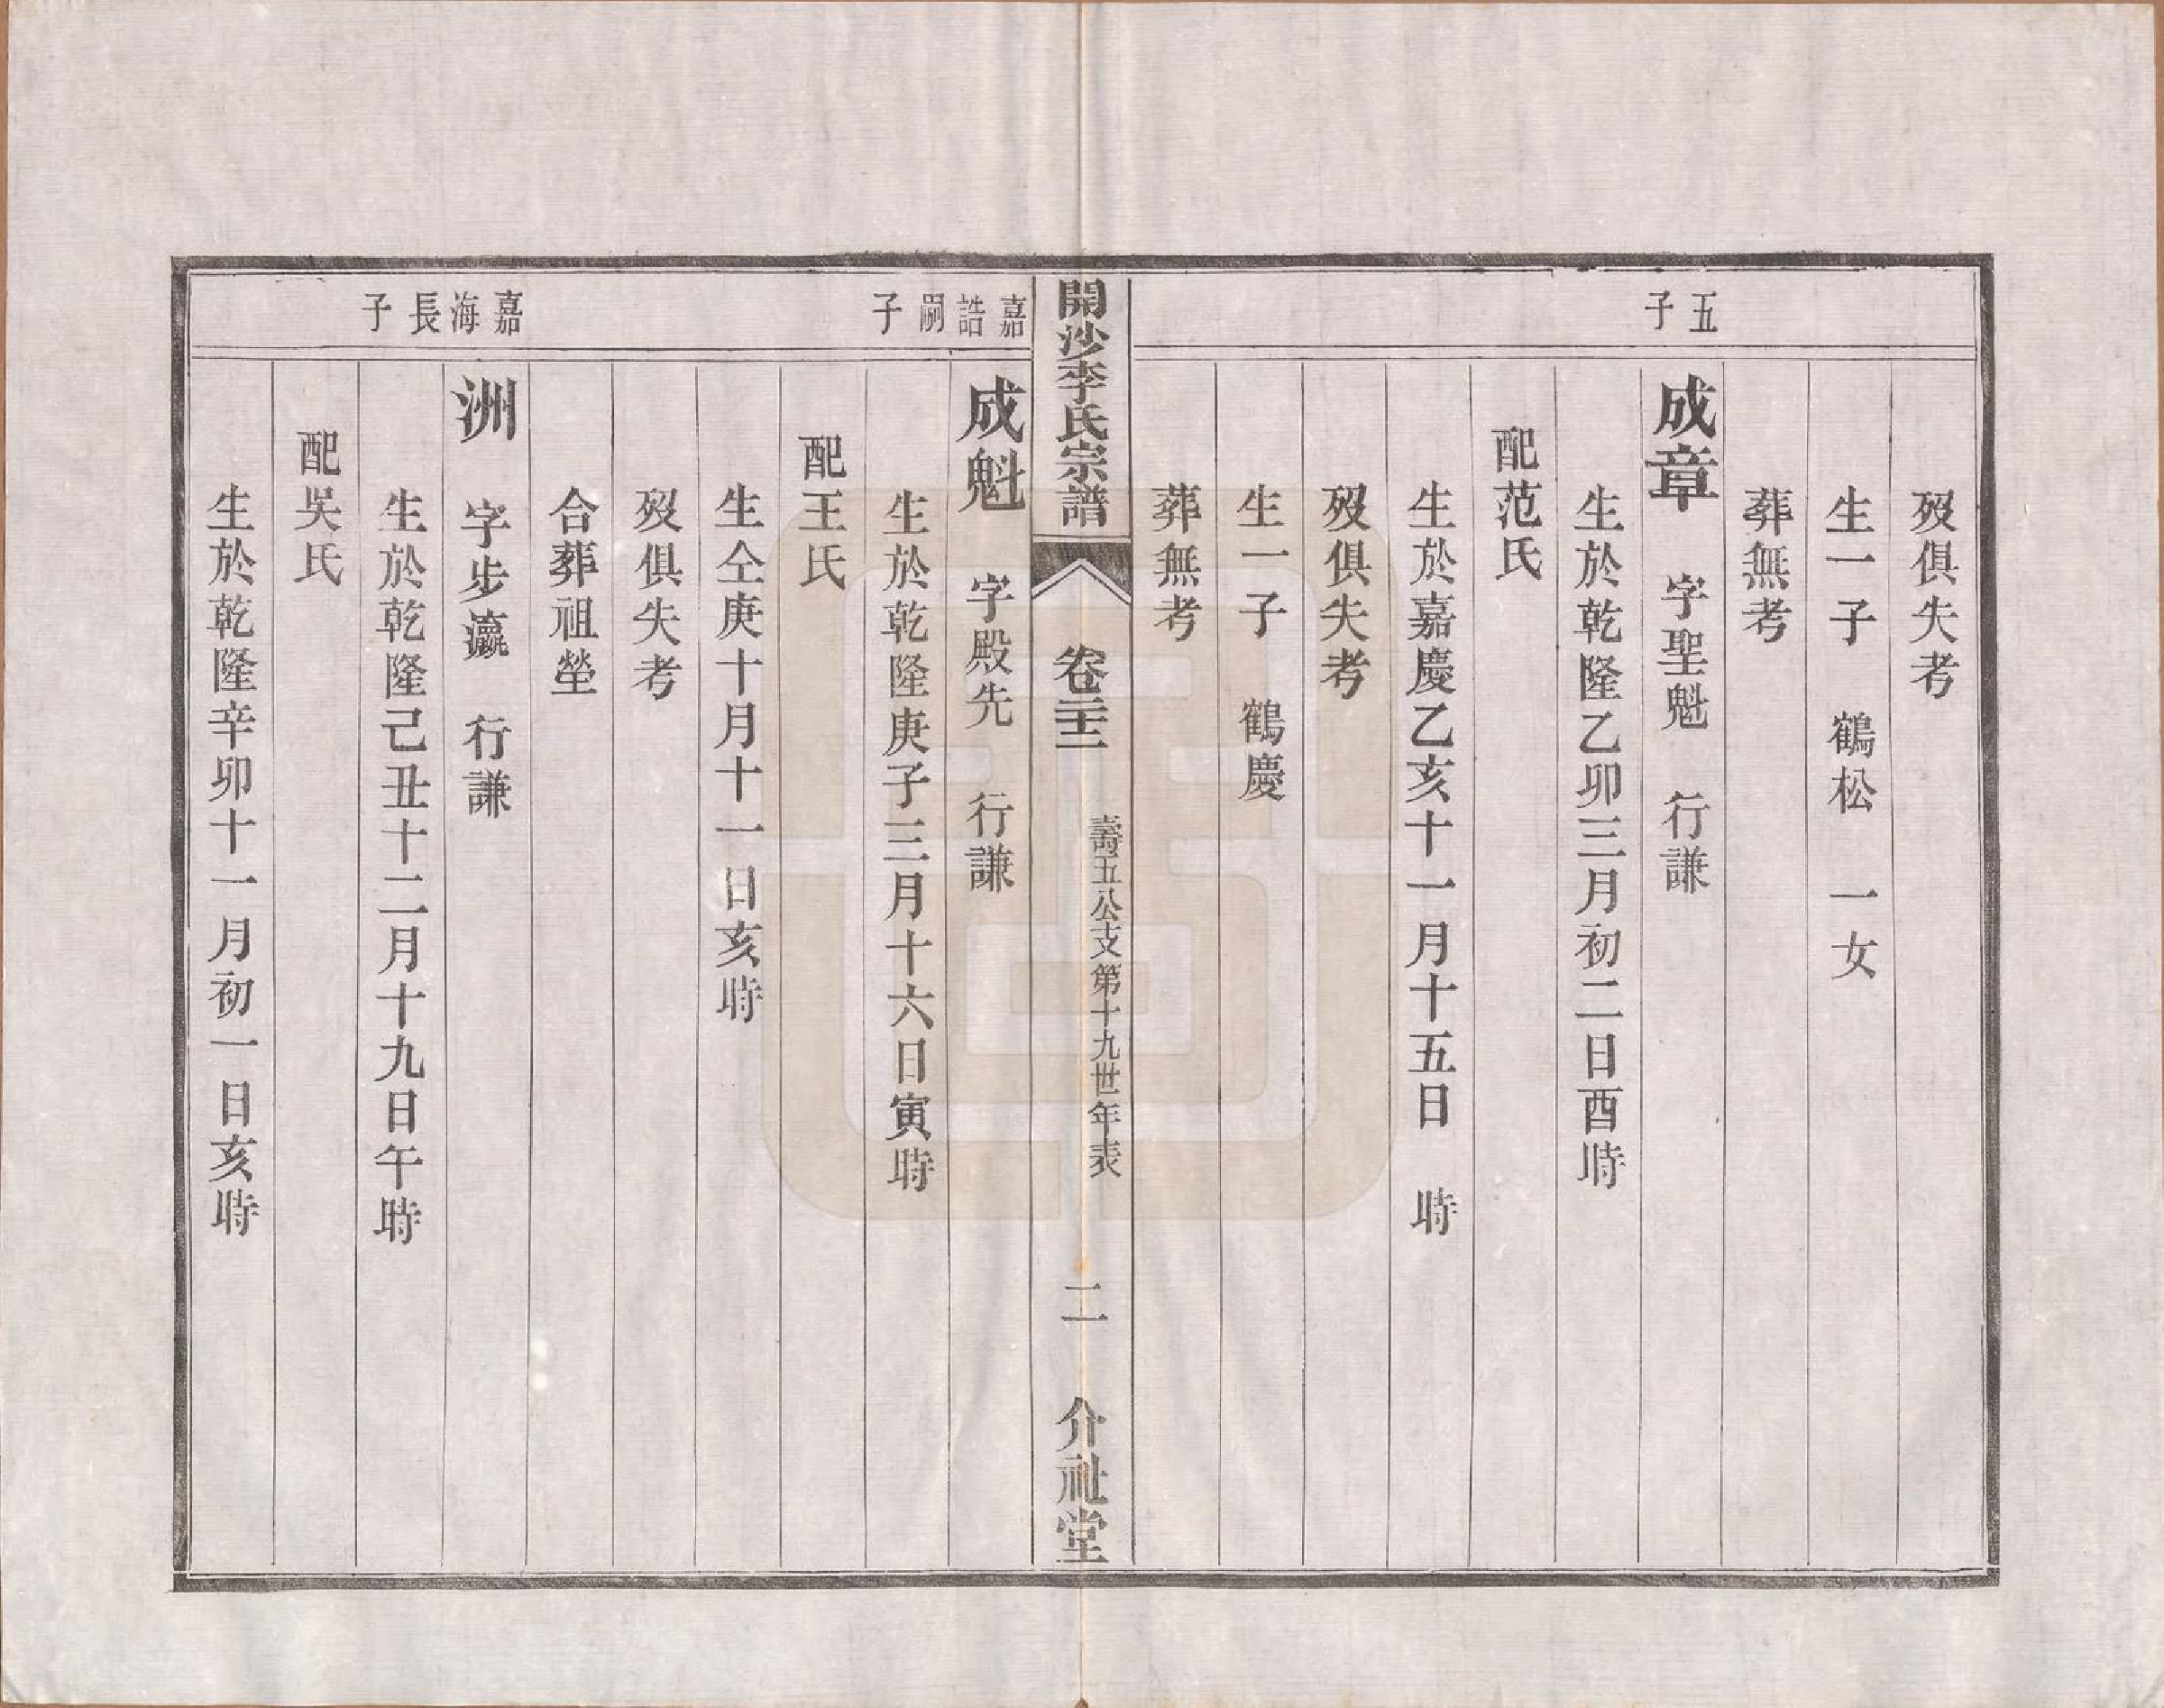 歿俱失考
生一子　鶴松　一女
葬無考
五子
成章　字聖魁　行謙
生於乾隆乙卯三月初二日酉時
配范氏
生於嘉慶乙亥十一月十五日　時
歿俱失考
生一子　鶴慶
葬無考
開沙李氏宗譜　卷二十三　壽五公支第十九世年表　二　介祉堂
嘉誥嗣子
成魁　字殿先　行謙
生於乾隆庚子三月十六日寅時
配王氏
生仝庚十月十一日亥時
歿俱失考
合葬祖塋
嘉海長子
洲　字步瀛　行謙
生於乾隆己丑十二月十九日午時
配吳氏
生於乾隆辛卯十一月初一日亥時